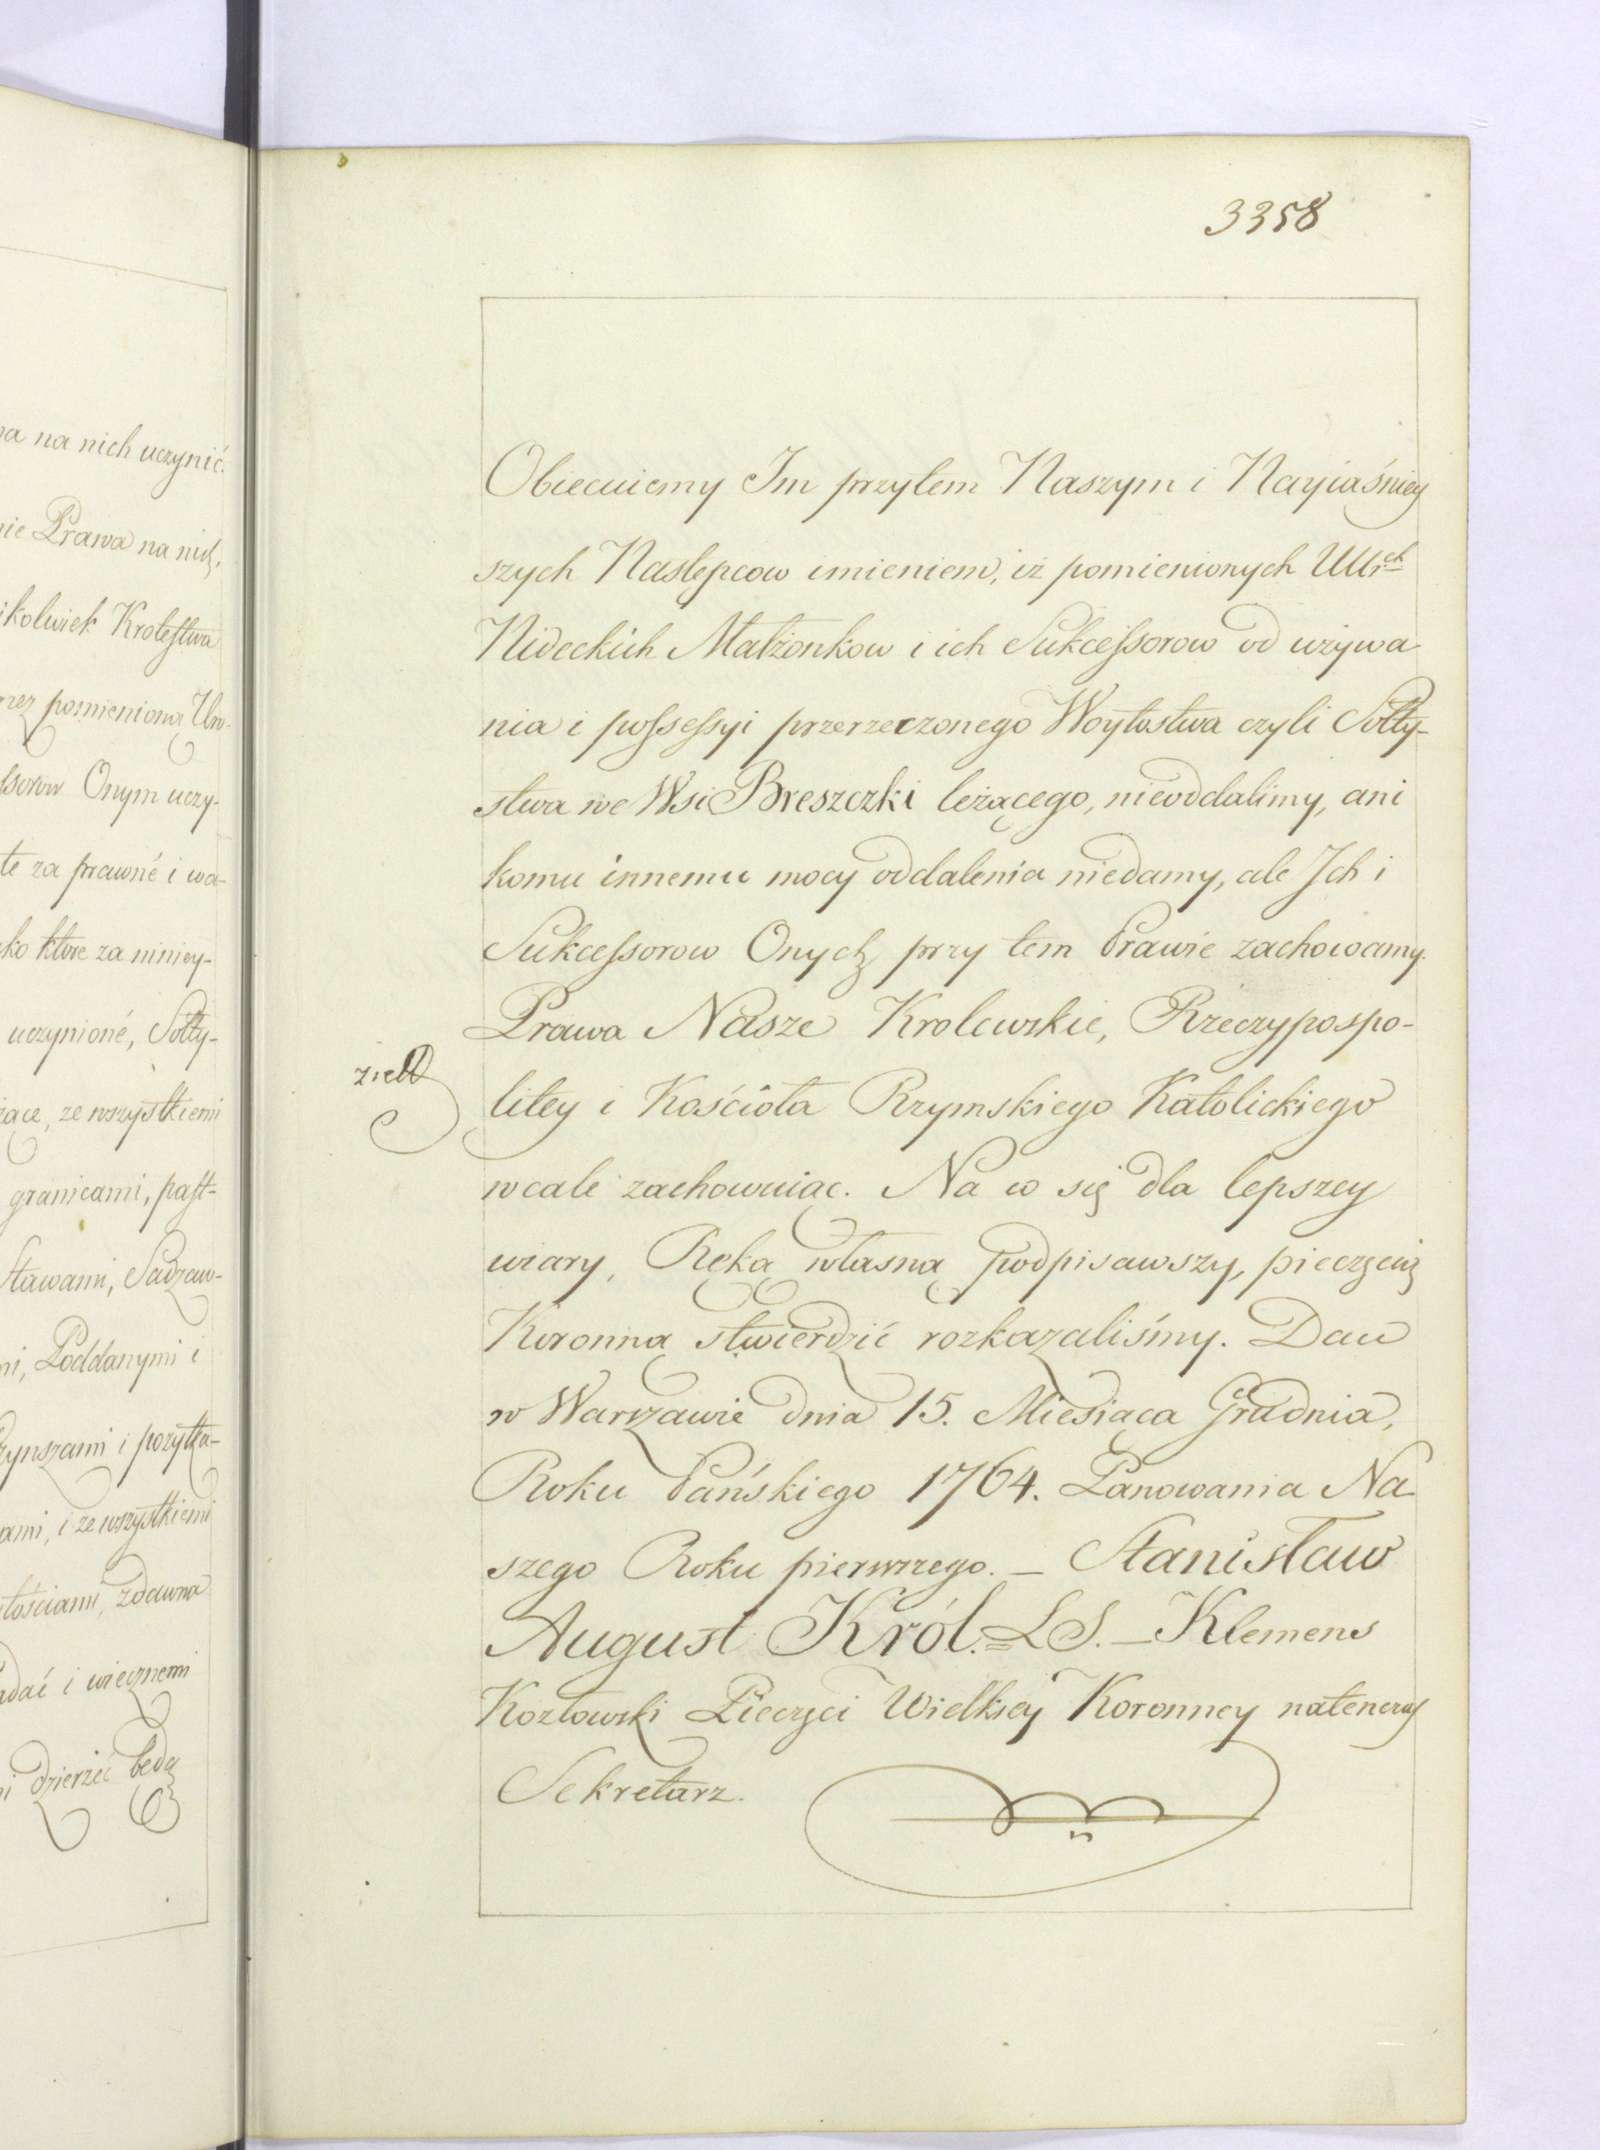 3358
a na nich uczynić.
nie Prawa na nich,
ikolwiek Krolestwa
rzez pomienioną Uro-
ssorow Onym uczy-
te za prawné i wa-
ko ktore za niniey-
uczynioné, Sołty-
żące, ze wszystkiemi
granicami, past-
Stawami, Sadzaw-
mi, Poddanymi i
Czynszami i pożytka-
ami, i ze wszystkiemi
łościami, zdawna
adać i wiecznemi
i dzierżeć będą
Obiecuiemy Im przytem Naszym i Nayiaśniey
szych Nastepcow imieniem, iż pomienionych UUr<sup>ch</sup>
Nideckich Małżonkow i ich Sukcessorow od używa
nia i possessyi przerzeczonego Woytostwa czyli Sołty-
stwa we Wsi Breszczki leżącego, nieoddalimy, ani
komu innemu mocy oddalenia niedamy, ale Ich i
Sukcessorow Onych przy tem Prawie zachowamy.
Prawa Nasze Krolewskie, Rzeczypospo-
litey i Kościoła Rzymskiego Katolickiego
wcale zachowuiąc. Na co się dla lepszey
wiary, Ręką własną podpisawszy, pieczęcią
Koronną stwierdzić rozkazaliśmy. Dan
w Warszawie dnia 15. Miesiąca Grudnia,
Roku Pańskiego 1764. Panowania Na
szego Roku pierwszego. – Stanisław
August Król. = LS. – Klemens
Kozłowski Pieczęci Wielkiey Koronney natenczas
Sekretarz.